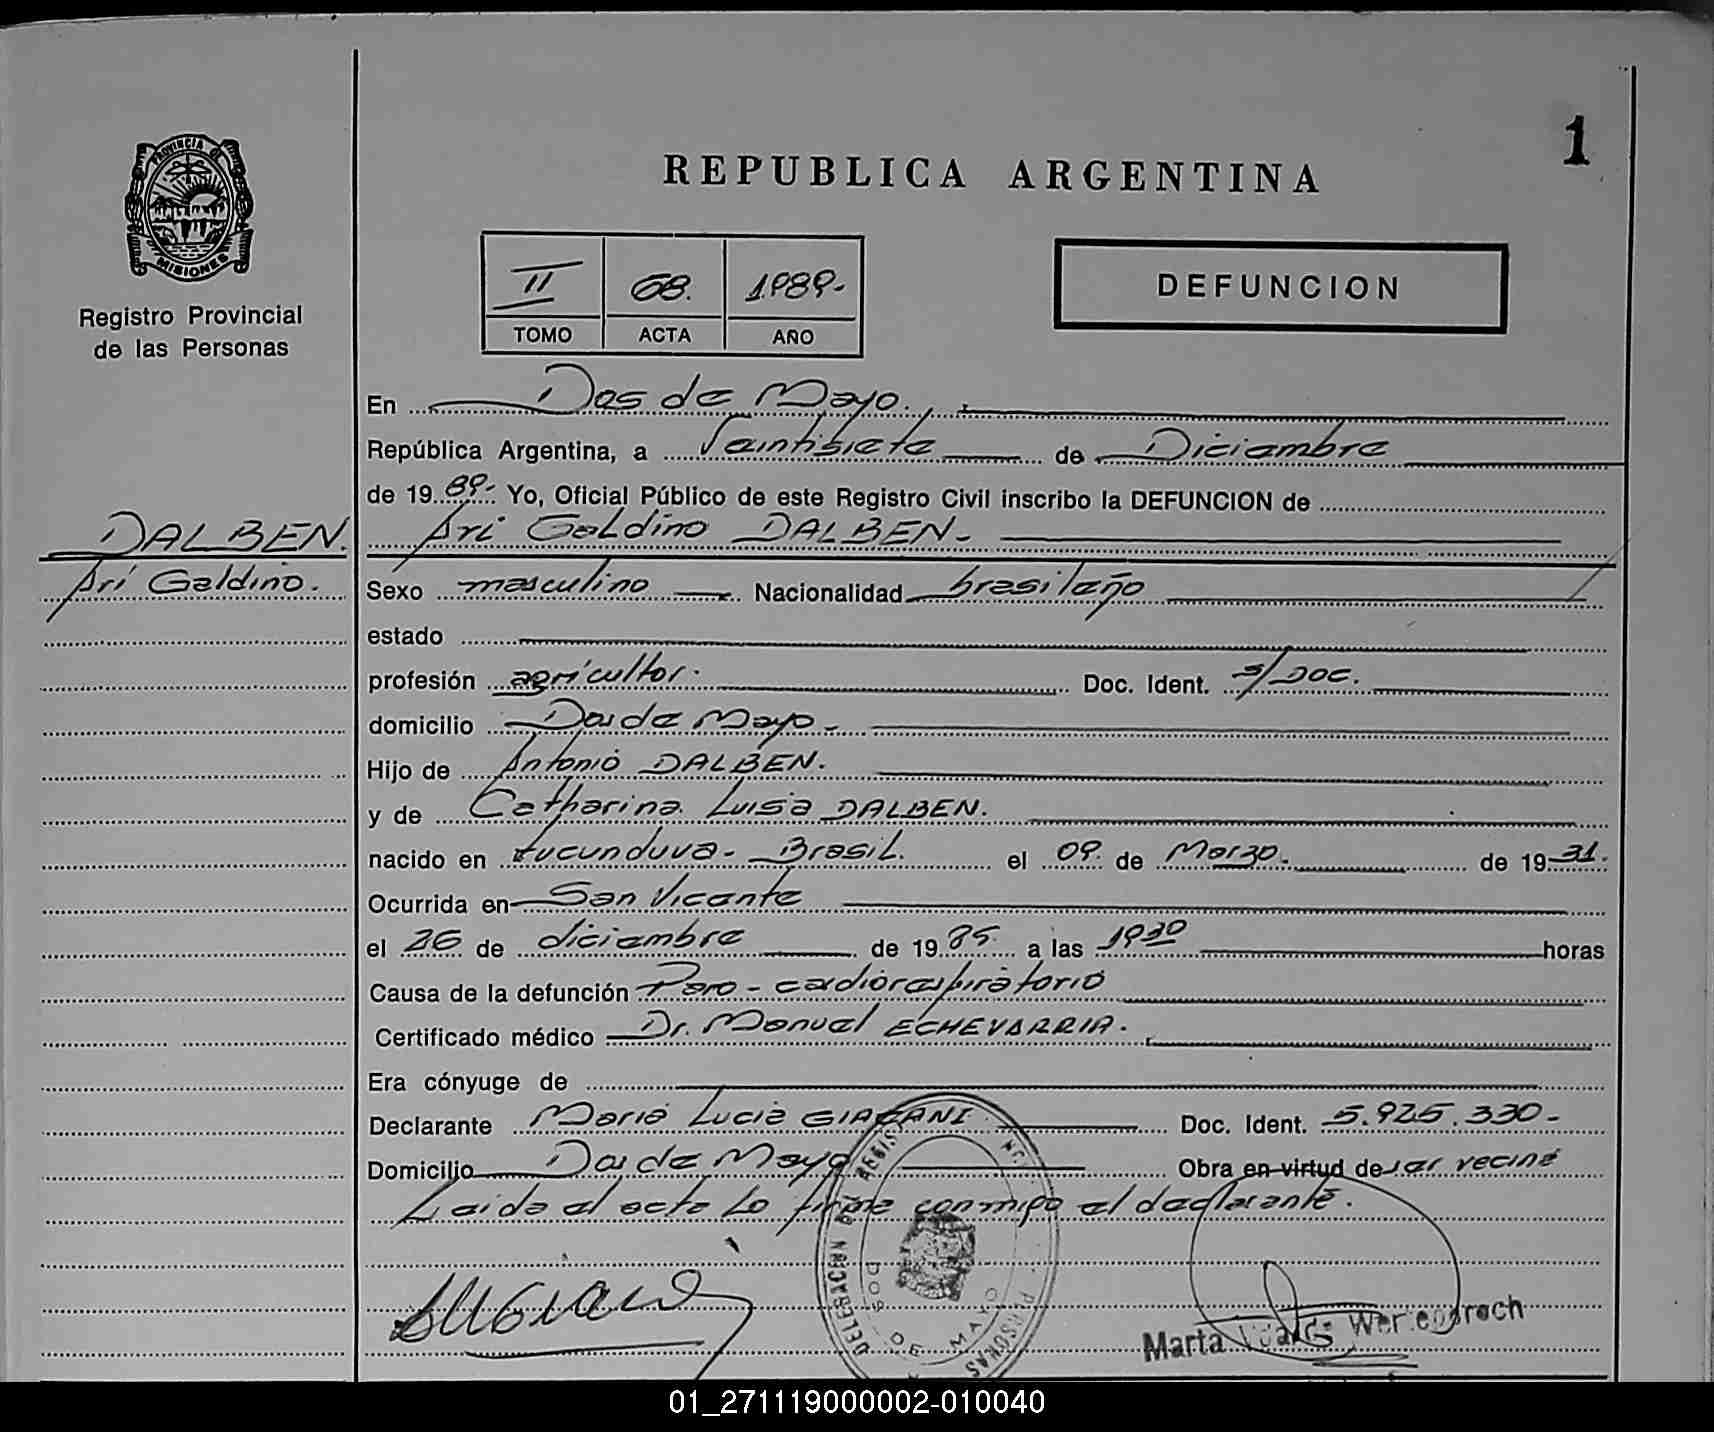 1
REPUBLICA ARGENTINA
PROVINCIA DE
MISIONES
Registro Provincial
de las Personas
II 68. 1989.-
TOMO ACTA AÑO
DEFUNCION
En Dos de Mayo.
República Argentina, a Veintisiete de Diciembre
de 19 89.- Yo, Oficial Público de este Registro Civil inscribo la DEFUNCION de
DALBEN. Ari Galdino DALBEN.-
Ari Galdino.
Sexo masculino Nacionalidad brasileño
estado
profesión agricultor. Doc. Ident. s/Doc.
domicilio Dos de Mayo.-
Hijo de Antonio DALBEN.
y de Catharina Luisa DALBEN.
nacido en tucunduva- Brasil. el 09. de Marzo.- de 19 31.
Ocurrida en San Vicente
el 26 de diciembre de 19 89. a las 19 30 horas
Causa de la defunción Paro - cardiorespiratorio
Certificado médico Dr. Manuel ECHEVARRIA.
Era cónyuge de
Declarante Maria Lucia Doc. Ident. 5.925.330-
Domicilio Dos de Mayo Obra en virtud de ser vecina
Leida el acta Lo firma conmigo el declarante.
DELEGACION DEL REGIS PERSONAS
DOS DE MAYO
Marta
01_271119000002-010040